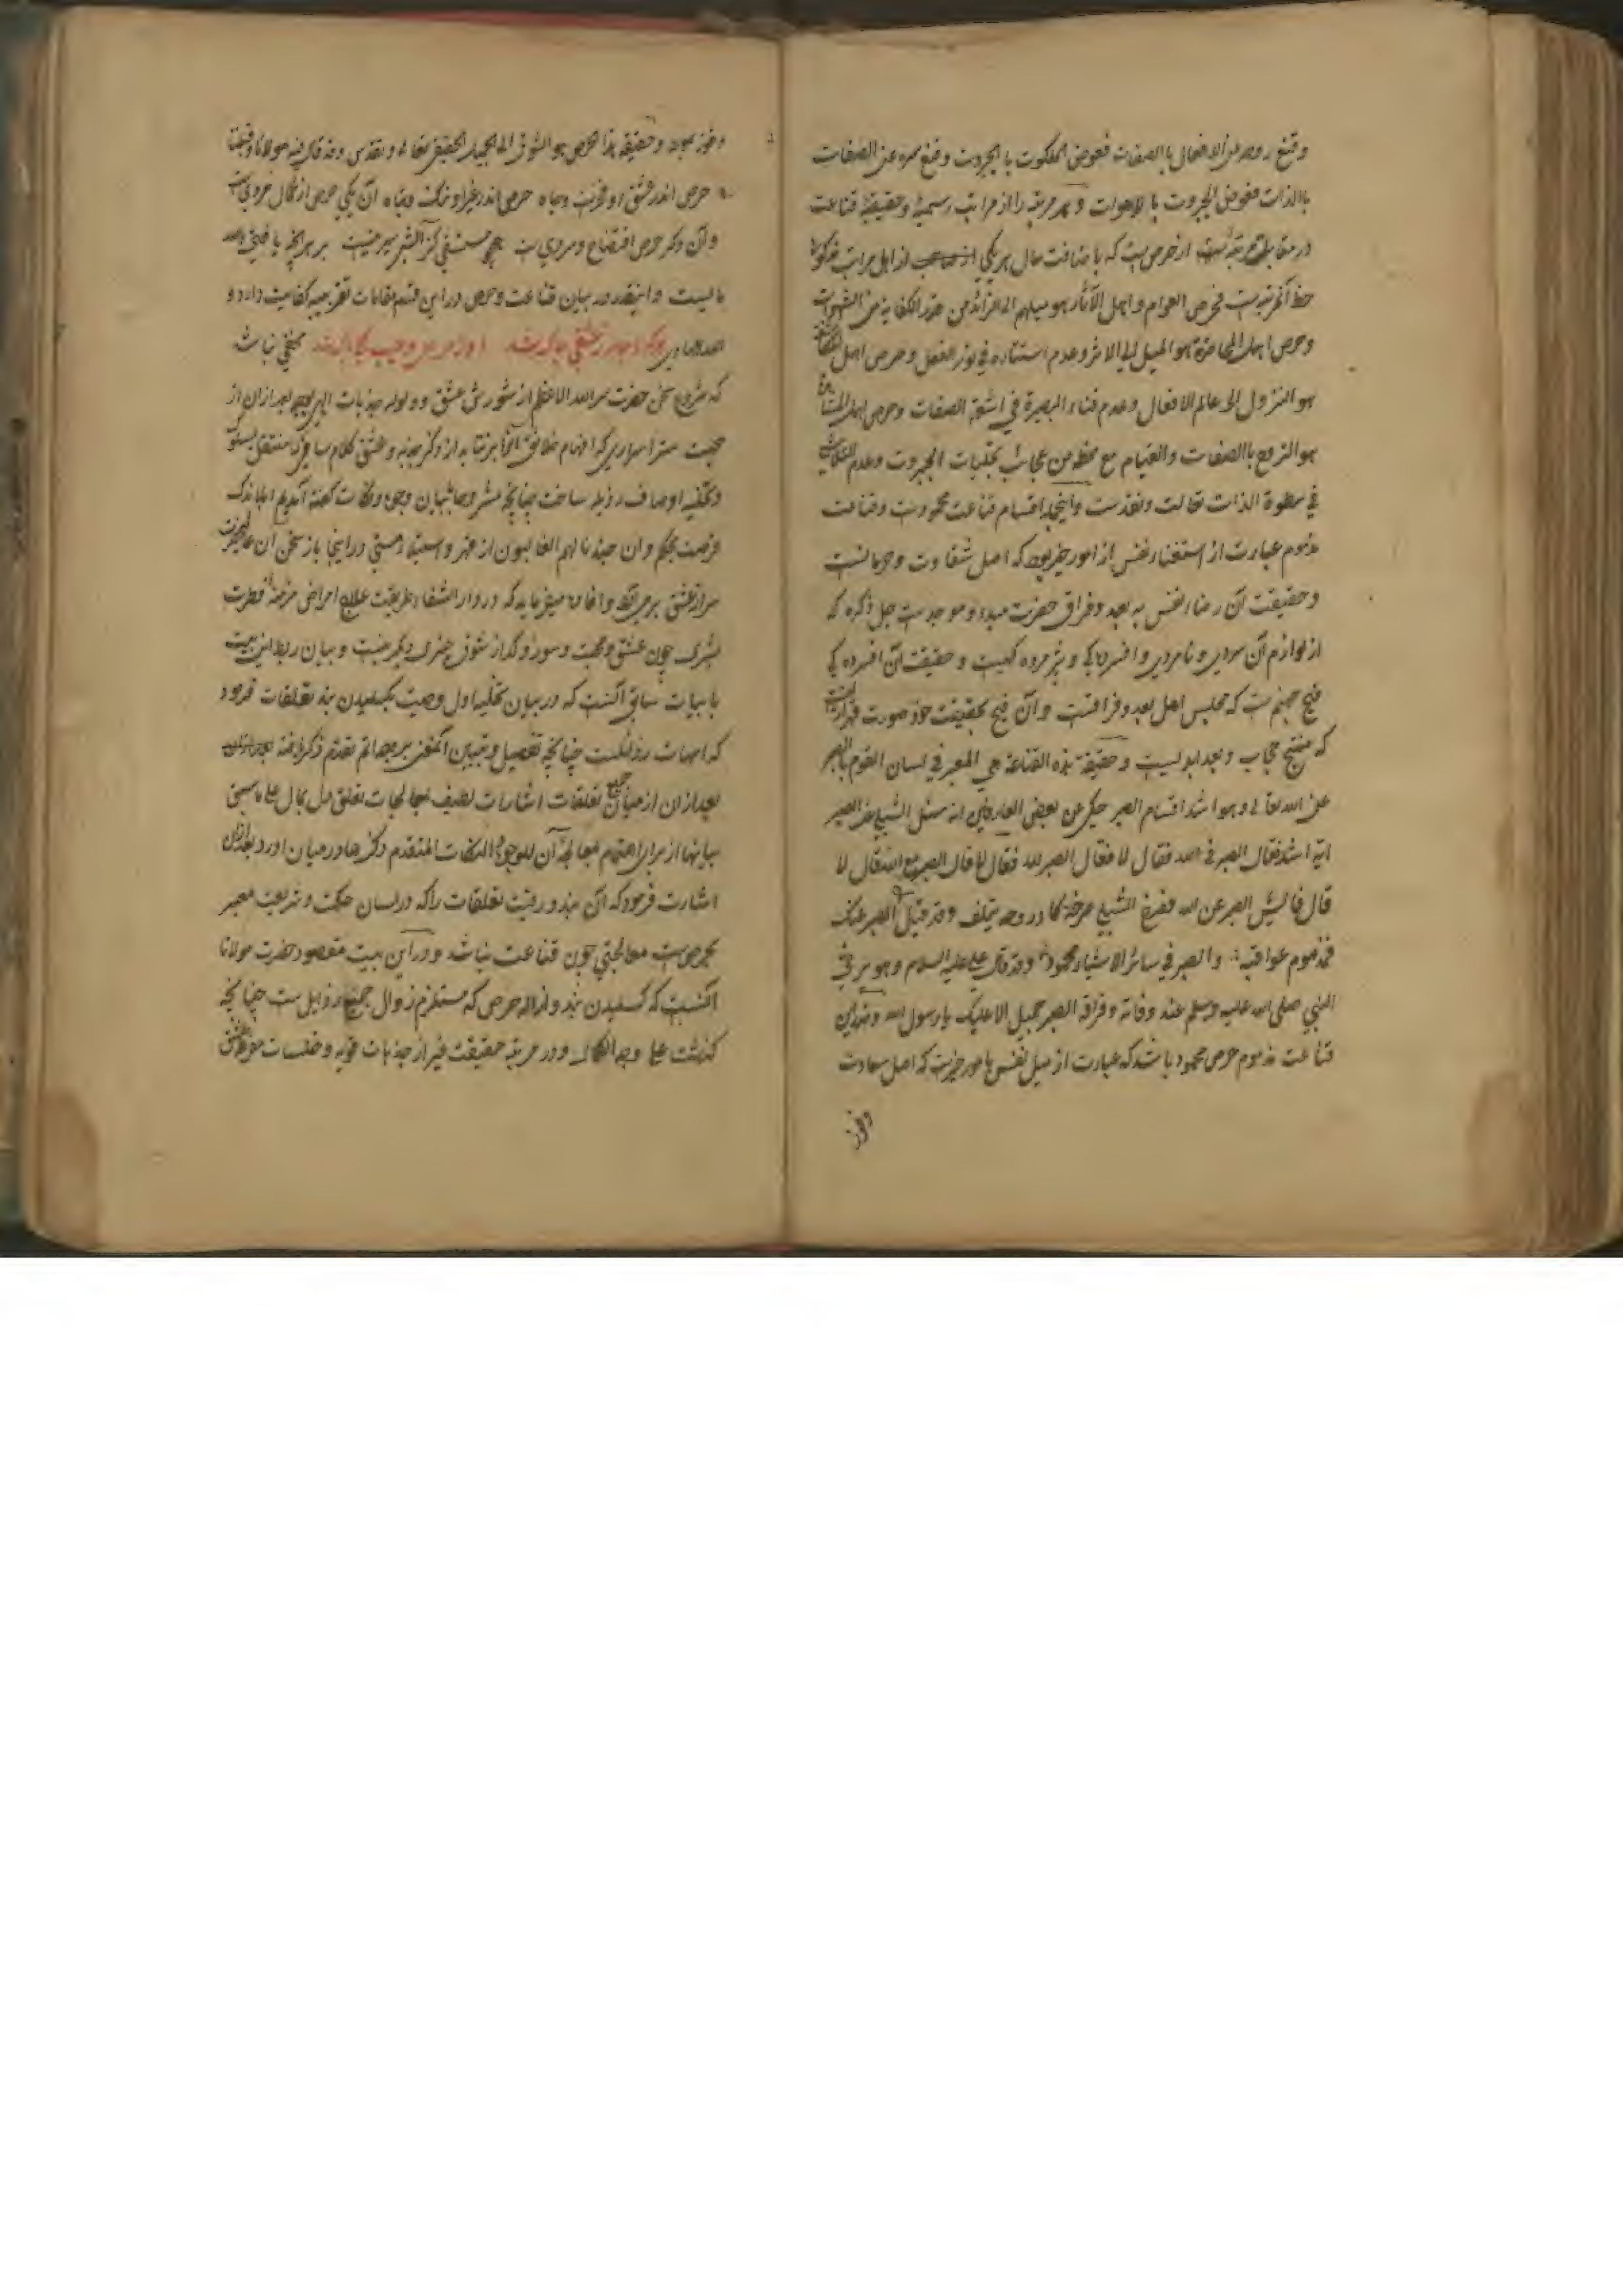 وقنع روحه عن الافعال باالصفات فعوض الملكوت باالجبروت وقنع سره عن الصفات
باالذات فعوض الجبروت باللاهوات و هر مرتبه را از مراتب رسمیه و حقیقیه قناعت
در مقابله مرتبه ایست از حرص است که باضافت حال هر یکی از اهل مراتب مذکوره
حظ آنمرتبه است فحرص العوام و اهل الآثار هو میلهم الی الزائد من قدر الکفایة من الشهوات
و حرص اهل المحاضرة هو المیل الی الاثر وعدم استناره فی نور الفعل و حرص اهل
هو النزول الی عالم الافعال وعدم فناء البصیرة فی اشعة الصفات و حرص اهل
هو التروح باالصفات والقیام مع حظه من عجائب تجلیات الجبروت وعدم التلاشی
فی سطوة الذات تعالت وتقدست و اینجا اقسام قناعت محمودست وقناعت
مذموم عبارت از استغناء نفس از امور خیر بود که اصل شقاوت و حرمانست
و حقیقت آن رضاء نفس به بعد وفراق حضرت مبدء وموجدست جل ذکره که
از لوازم آن سردی و نامردی و افسردگی و پژمرده کیست و حقیقت آن افسردگی
فیح جهنم ست که مجلس اهل بعد وفراقست و آن فیح بحقیقت خود صورت قهر
که منتج حجاب وبعد ابدلیست و حقیقة هذه القناعة هی المعبر فی لسان القوم باالصبر
عن الله تعالی وهو اشد اقسام الصبر حکی عن بعض العارفین انه سئل الشبلی عن الصبر
ایه اشد فقال الصبر فی الله فقال لا فقال الصبر لله فقال لا قال الصبر مع الله فقال لا
قال فاایش الصبر عن الله فصرخ الشبلی صرخة کاد روحه یتلف وقد قیل الصبر عنک
فمذموم عواقبه والصبر فی سائر الاشیاء محمود وقد قال علی علیه السلام وهو یرثی
النبی صلی الله علیه وسلم عند وفاته وفراقه الصبر جمیل الا علیک یا رسول الله و ضد این
قناعت مذموم حرص محمود باشد که عبارت از میل نفس بامور خیریست که اصل سعادت
وفوز
وفوز بود و حقیقة هذا الحرص هو الشوق الی الجمیل الحقیقی تعالی وتقدس وقد قال فیه مولانا
حرص اندر عشق او فخرست وجاه حرص اندر غیر او ننگ و تباه آن یکی حرص از کمال مردی است
و آن دگر حرص افتضاح و سردی است همچو مستسقی کز آبش سیر نیست بر هر آنچه یافتی بالله
مایست و اینقدر در بیان قناعت وحرص در این قسم مقامات تقریبیه کفایت دارد و
الله الهادی هرکه را جامه ز عشقی چاک شد او ز حرص و عیب کلی پاک شد مخفی نباشد
که شروع سخن حضرت سر الله الاعظم از شورش عشق و ولوله جذبات الهی بود بعد از آن از
محبت ستر اسراری که افهام خلائق آنرا بر نتابد از ذکر جذبه و عشق کلام سامی منتقل بسوی
وتخلیه اوصاف رذیله ساخت چنانچه مشروحا تبیان وجوه ونکات
فرصت بحکم وان جندنا لهم الغالبون از قهر و استیلاء مستی در اینجا باز سخن آن
سر از عشق بر میزند وافاده میفرماید که در دار الشفاء طریقت علاج امراض مزمنه فطرت
بشری چون عشق ومحبت و سوز و گداز شوق چیزی دیگر نیست و بیان ربط این بیت
با بیات سابق آنست که در بیان تخلیه اول وصیت بکسلیدن بند تعلقات فرمود
که امهات رذائلست چنانچه تفصیل وتبیین آنمعنی بر وجه اتم تقدم ذکر یافته
بعد از آن از میان جمیع تعلقات اشارات لطیف بمعالجات تعلق دل بمال علی ما سبق
بیانها از برای اهتمام معالجه آن للوجوه والنکات المتقدم ذکرها در میان آورد بعد از آن
اشارت فرمود که آن بند ورقیت تعلقات را که در لسان حکمت و شریعت معبر
بحرص است معالجتی چون قناعت نباشد و در این بیت مقصود حضرت مولانا
آنست که کسلیدن بند و ازاله حرص که مستلزم زوال جمیع رذایل ست چنانچه
گذشت علی وجه الکمال و در مرتبه حقیقت غیر از جذبات قویه وخلسات